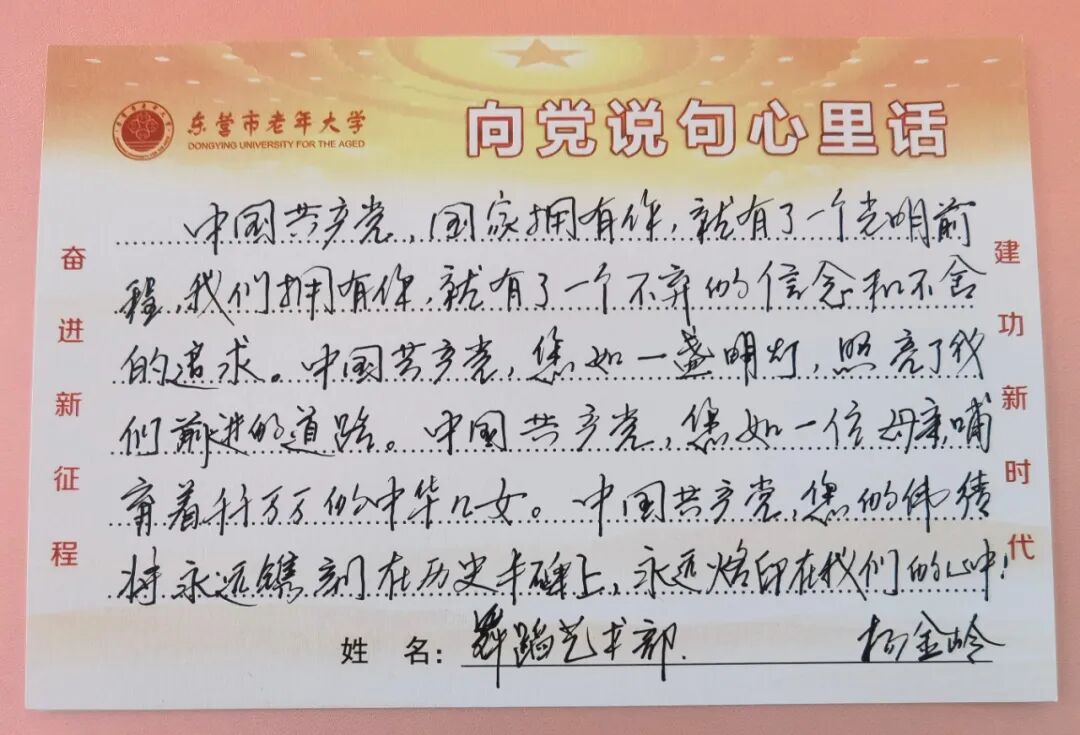 东营市老年大学
DONGYING UNIVERSITY FOR THE AGED
向党说句心里话
奋进新征程
建功新时代
中国共产党,国家拥有你,就有了一个光明前
程,我们拥有你,就有了一个不弃的信念和不舍
的追求。中国共产党,您如一盏明灯,照亮了我
们前进的道路。中国共产党,您如一位母亲哺
育着千千万万的中华儿女。中国共产党,您的伟绩
将永远镌刻在历史丰碑上,永远烙印在我们的心中!
姓 名: 舞蹈艺术部. 杨金岭